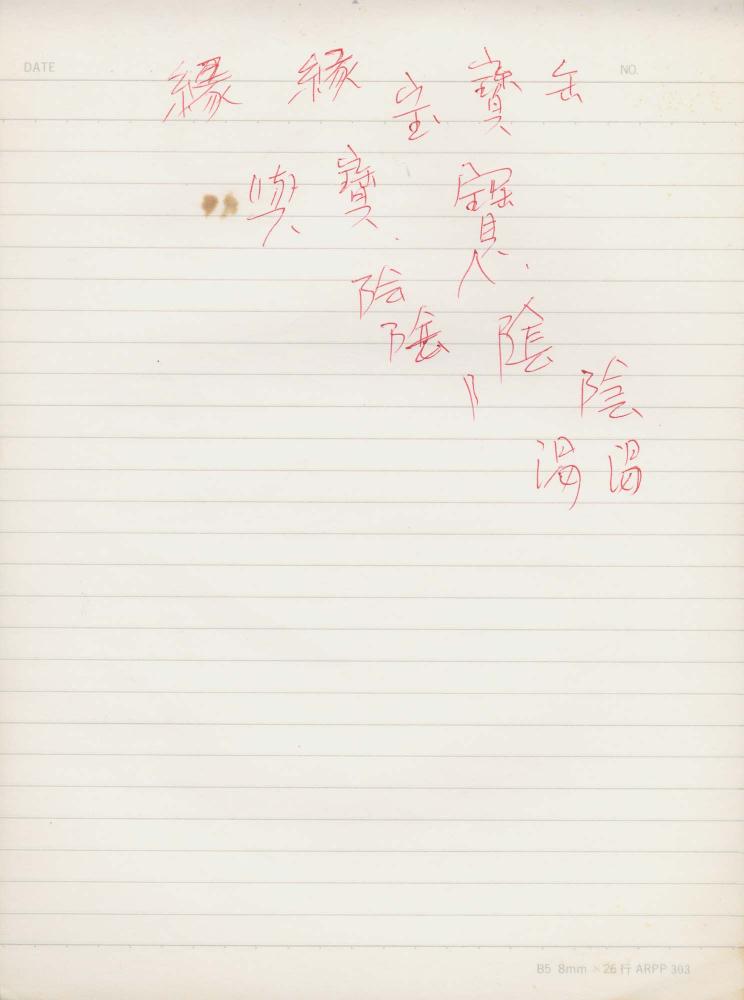 DATE
NO.
縁 縁 宝 寶 缶
與 寶 寶
陰
陰 陰
陰
渇 渇
B5 8mm×26行 ARPP 303